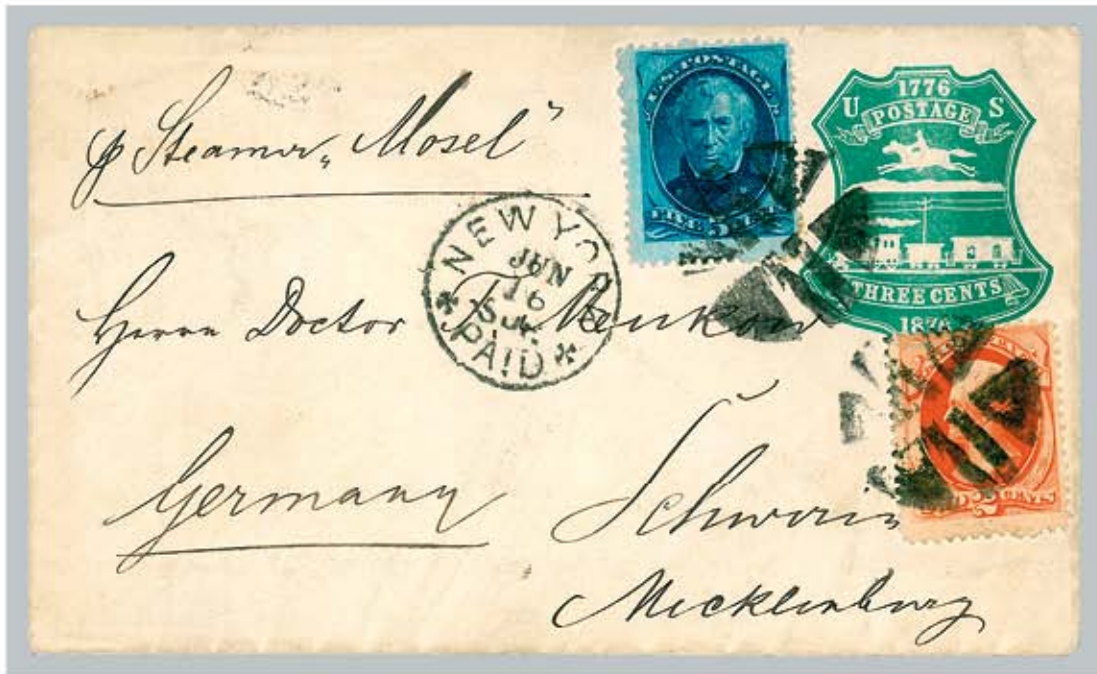 p Steamer „Mosel"
U.S. POSTAGE
FIVE 5 CENTS
1776
U S
POSTAGE
THREE CENTS
1876
NEW YORK
JUN
16
PAID
Herrn Doctor
Germany
Schwerin
Mecklenburg
2 CENTS